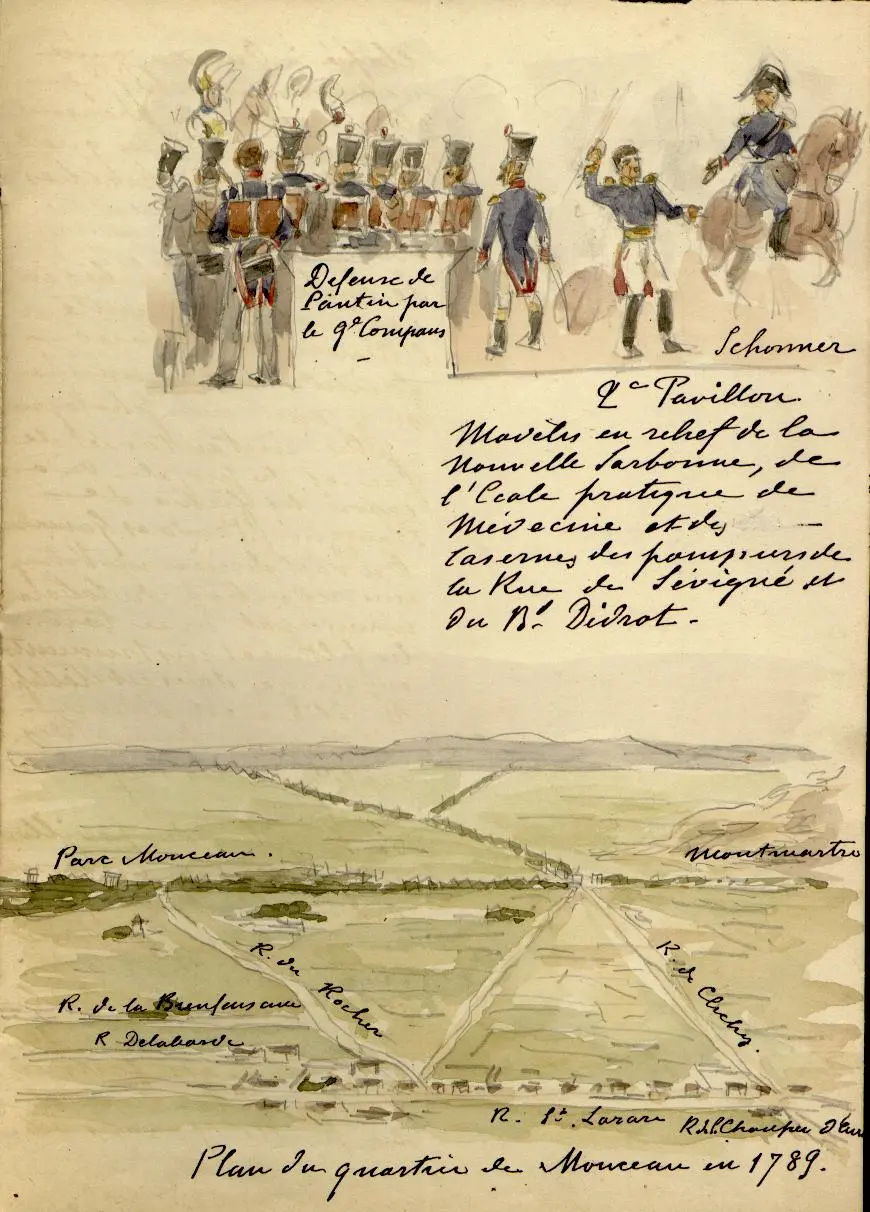 Defense de
Pantin par
le Gal Compans
Schommer
2e Pavillon.
Modèles en relief de la
Nouvelle Sorbonne, de
l'Ecole pratique de
Médecine et des
Casernes des pompiers de
la Rue de Sévigné et
du Bd. Diderot.
Parc Monceau.
Montmartre
R. du Rocher
R. de Clichy.
R. de la Bienfaisance
R Delaborde
R. St. Lazare
R de l. Chaussée d'An
Plan du quartier de Monceau en 1789.